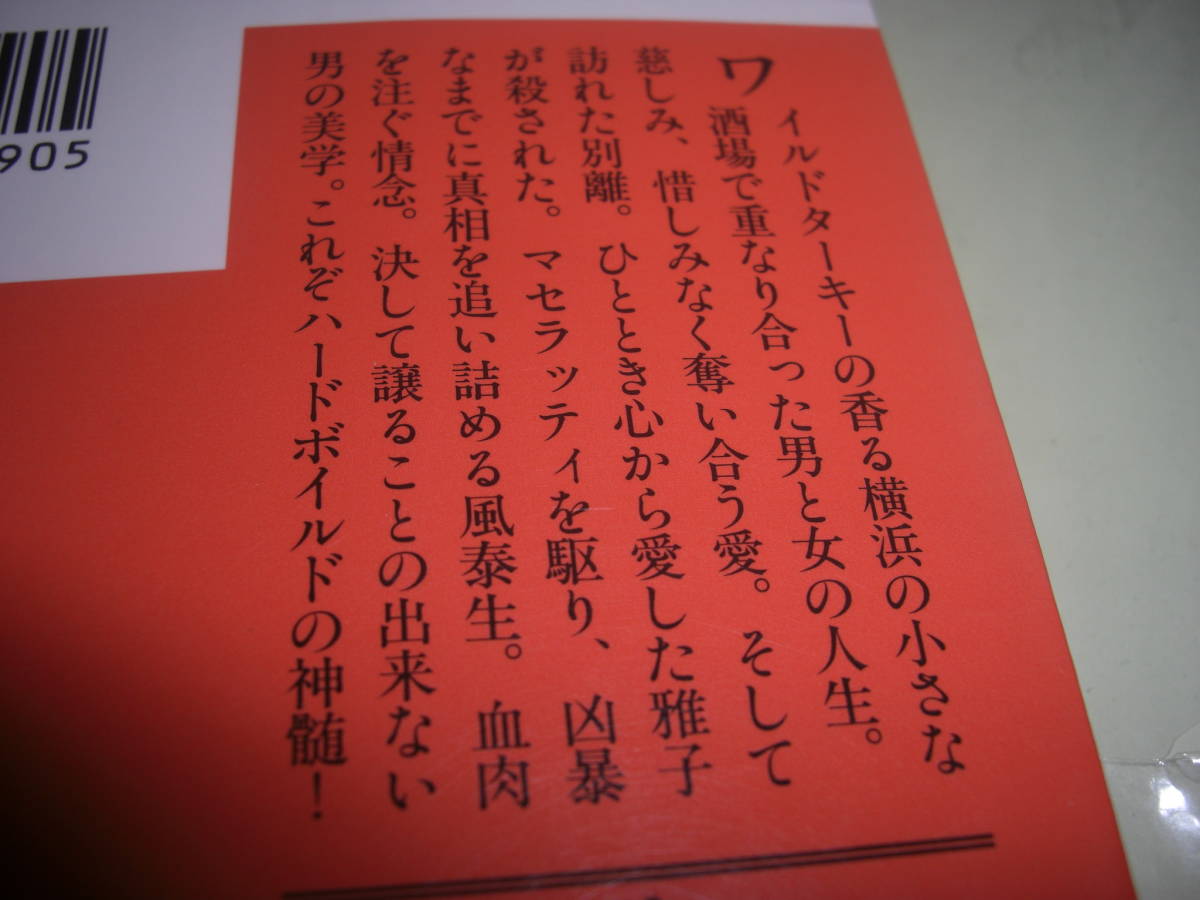 ワイルドターキーの香る横浜の小さな
酒場で重なり合った男と女の人生。
慈しみ、惜しみなく奪い合う愛。そして
訪れた別離。ひととき心から愛した雅子
が殺された。マセラッティを駆り、凶暴
なまでに真相を追い詰める風泰生。血肉
を注ぐ情念。決して譲ることの出来ない
男の美学。これぞハードボイルドの神髄！
905